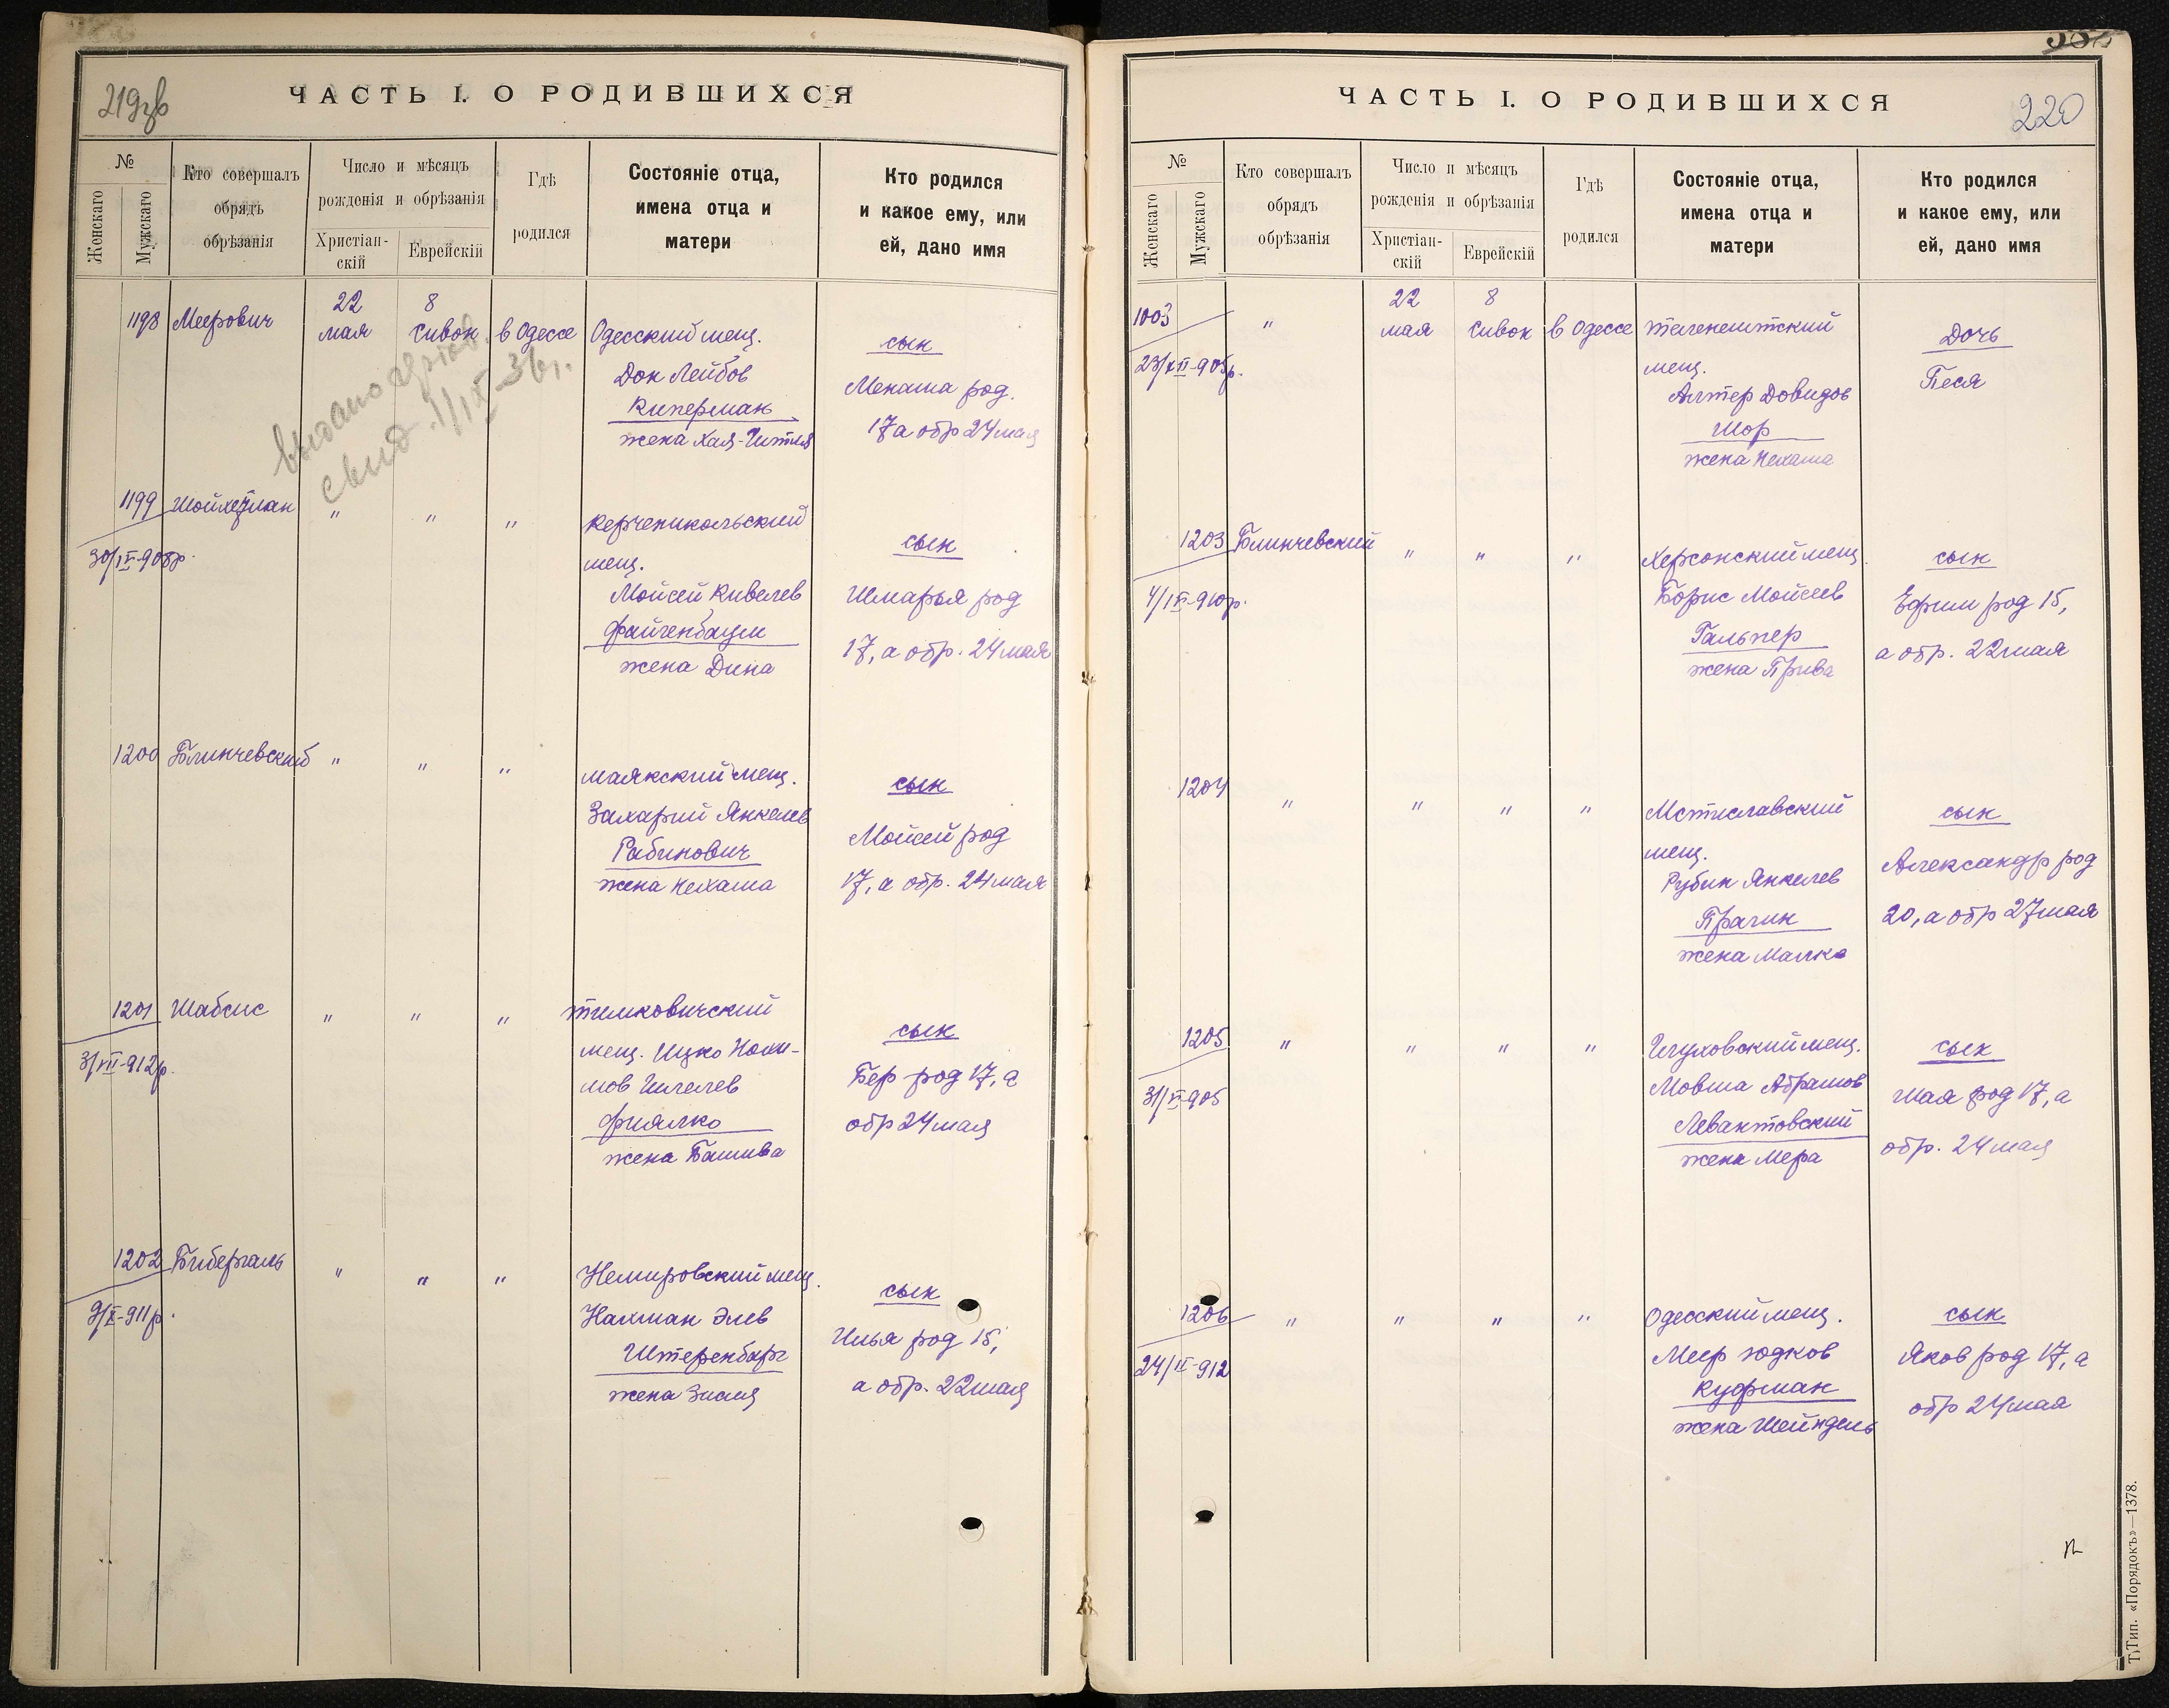 219
ЧАСТЬ I. О РОДИВШИХСЯ
№
Женскаго
Мужскаго
Кто совершалъ
обрядъ
обрѣзанія
Число и мѣсяцъ
рожденія и обрѣзанія
Христіан-
скій
Еврейскій
Гдѣ
родился
Состояніе отца,
имена отца и
матери
Кто родился
и какое ему, или
ей, дано имя
1198 Меерович
22 мая
8 Сивон
в Одессе
Одесский мещ.
Дон Лейбов
Киперман
жена Хая-Гитля
сын
Менаша род.
17 а обр 24 мая
выдано
свид. 1/IX 36 г.
1199 Шойхетман
30/IV-908р.
" " "
Керченикольский
мещ.
Мойсей Кивелев
Файгенбаум
жена Дина
сын
Шмарья род
17, а обр. 24 мая
1200 Блинчевский
" " "
маякский мещ.
Захарий Янкелев
Рабинович
жена Нехама
сын
Мойсей род
17, а обр. 24 мая
1201 Шабсис
3/VII-912р.
" " "
тимковичский
мещ. Ицко Нохи-
мов Гилелев
Фиалко
жена Башива
сын
Бер род 17, а
обр 24 мая
1202 Бибергаль
9/X-911р.
" " "
Немировский мещ.
Нахман Элев
Штеренберг
жена Зисля
сын
Илья род 15,
а обр. 22 мая
220
ЧАСТЬ I. О РОДИВШИХСЯ
№
Женскаго
Мужскаго
Кто совершалъ
обрядъ
обрѣзанія
Число и мѣсяцъ
рожденія и обрѣзанія
Христіан-
скій
Еврейскій
Гдѣ
родился
Состояніе отца,
имена отца и
матери
Кто родился
и какое ему, или
ей, дано имя
1003
23/XII-905р.
"
22 мая
8 Сивон
в Одессе
теленештский
мещ.
Алтер Довидов
Шор
жена Нехама
Дочь
Песя
1203 Блинчевский
4/IV-910р.
" " "
Херсонский мещ.
Борис Мойсеев
Гальпер
жена Прива
сын
Ефим род 15,
а обр. 22 мая
1204
" " " "
Мстиславский
мещ.
Рубин Янкелев
Прагин
жена Малка
сын
Александр род
20, а обр 27 мая
1205
31/V-905
" " " "
Глуховский мещ.
Мовша Абрамов
Левантовский
жена Мера
сын
Шая род 17, а
обр. 24 мая
1206
24/II-912
" " " "
Одесский мещ.
Меер Юдков
Куфман
жена Шейндель
сын
Яков род 17, а
обр 24 мая
Т. Тип. «Порядокъ»—1378.